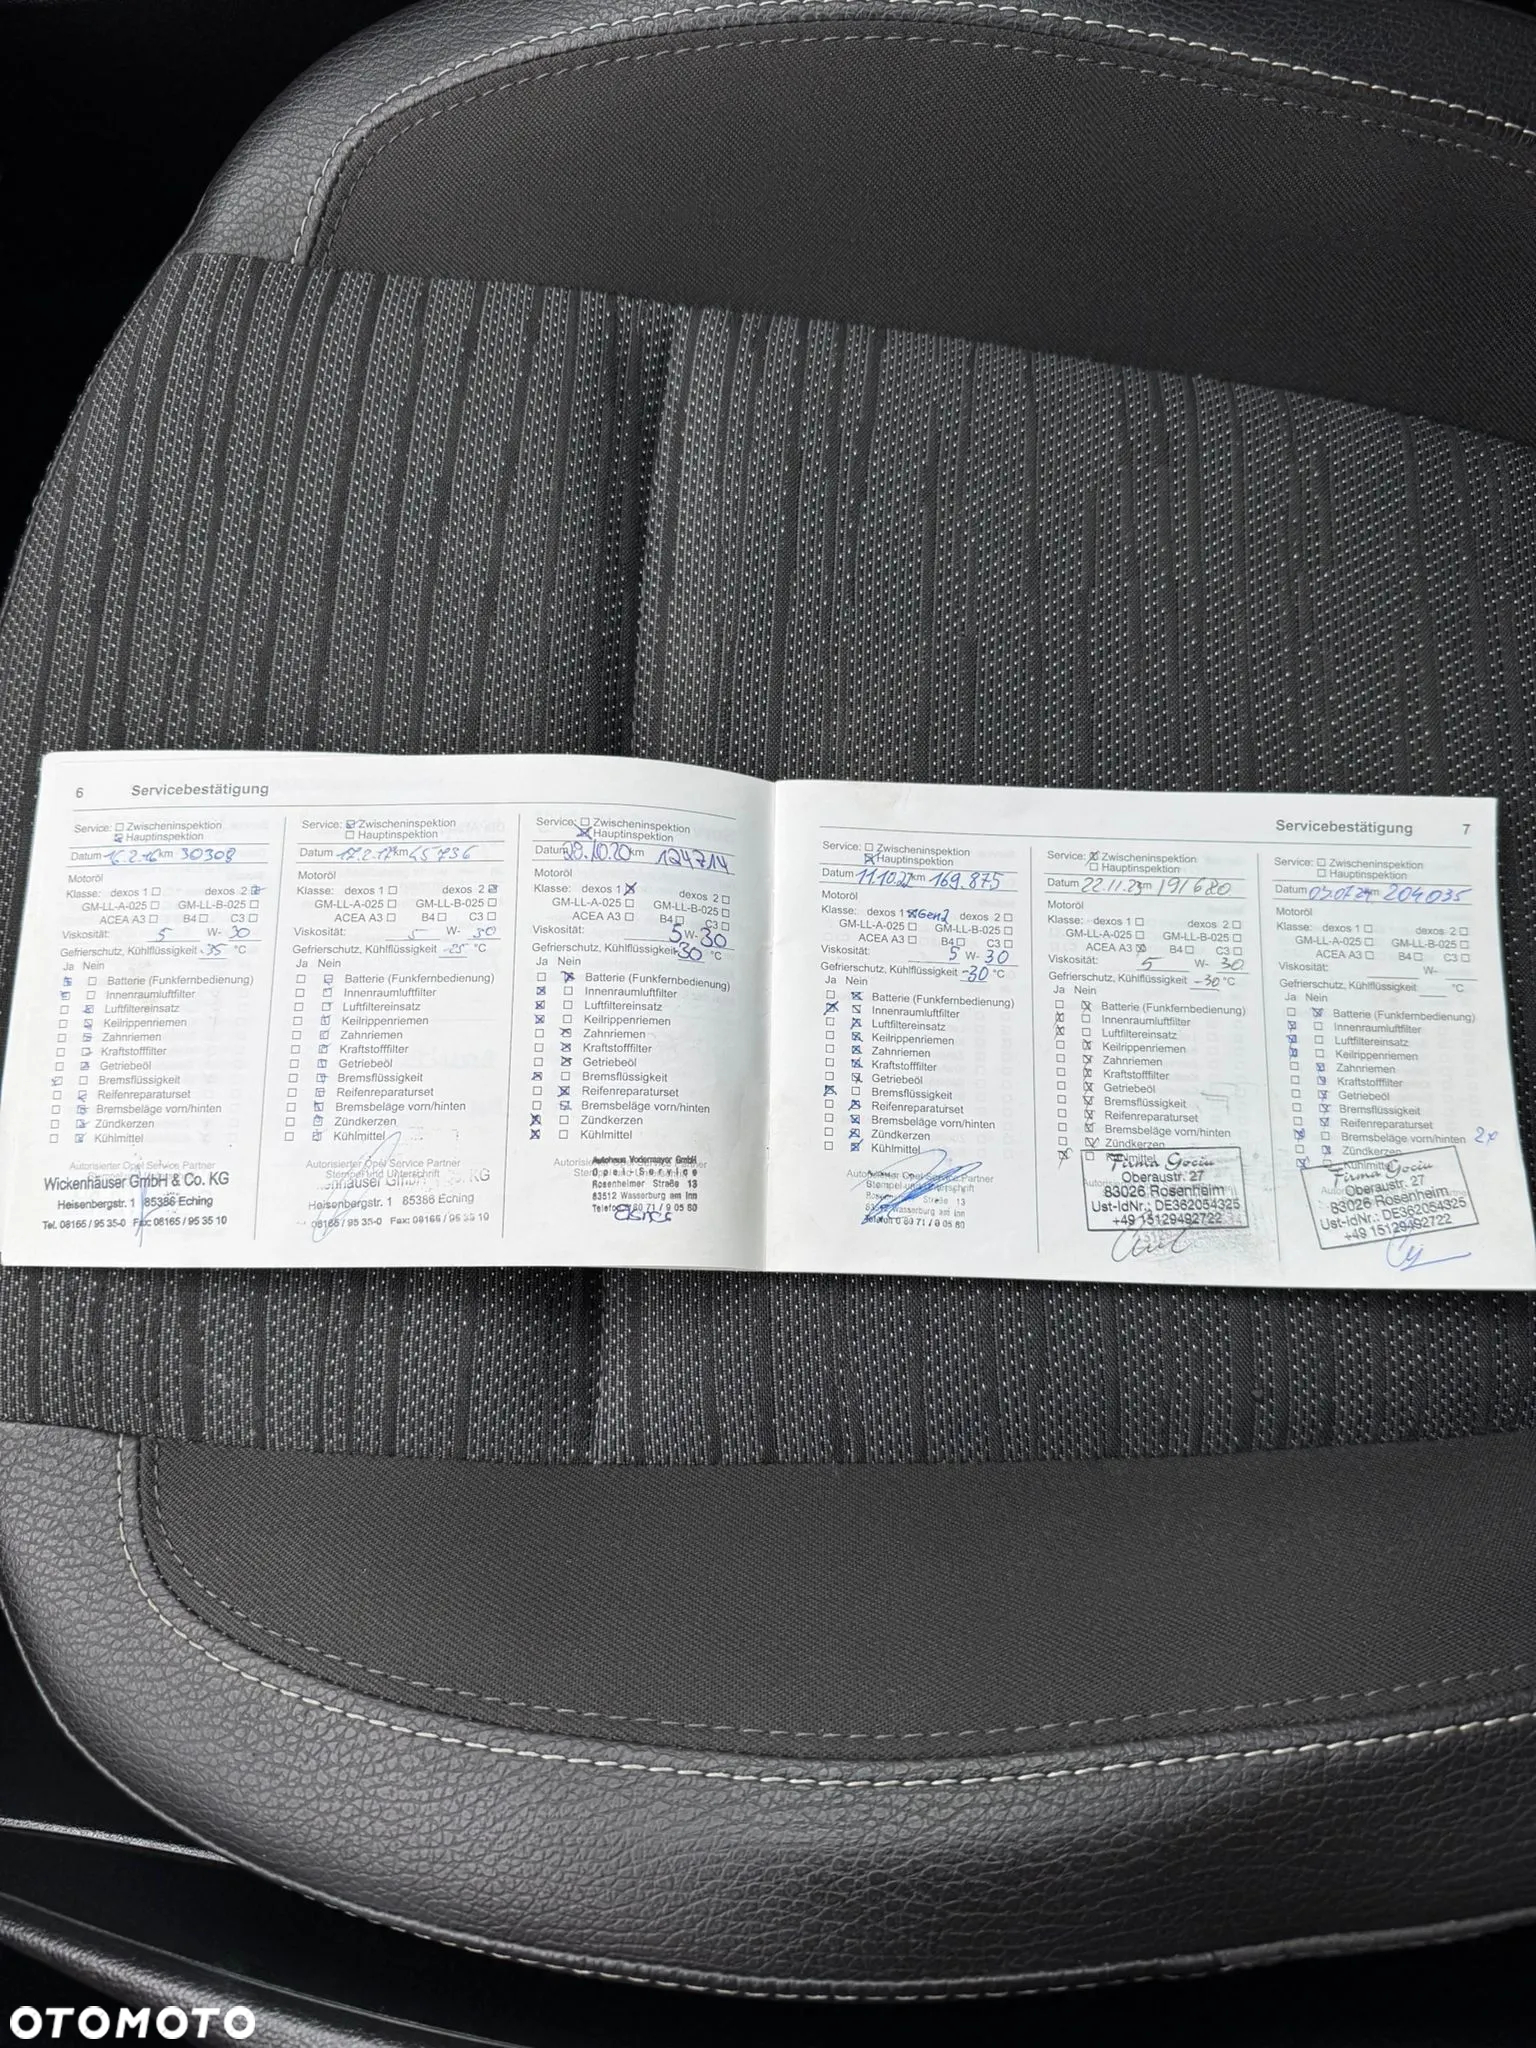 6 Servicebestätigung
Service: Zwischeninspektion
Hauptinspektion
Datum 16.2.16 km 30308
Motoröl
Klasse: dexos 1 dexos 2
GM-LL-A-025 GM-LL-B-025
ACEA A3 B4 C3
Viskosität: 5 W- 30
Gefrierschutz, Kühlflüssigkeit -35 °C
Ja Nein
Batterie (Funkfernbedienung)
Innenraumluftfilter
Luftfiltereinsatz
Keilrippenriemen
Zahnriemen
Kraftstofffilter
Getriebeöl
Bremsflüssigkeit
Reifenreparaturset
Bremsbeläge vorn/hinten
Zündkerzen
Kühlmittel
Autorisierter Opel Service Partner
Wickenhäuser GmbH & Co. KG
Heisenbergstr. 1 85386 Eching
Tel. 08165 / 95 35-0 Fax: 08165 / 95 35 10
Service: Zwischeninspektion
Hauptinspektion
Datum 17.2.17 km 45736
Motoröl
Klasse: dexos 1 dexos 2
GM-LL-A-025 GM-LL-B-025
ACEA A3 B4 C3
Viskosität: 5 W- 30
Gefrierschutz, Kühlflüssigkeit -25 °C
Ja Nein
Batterie (Funkfernbedienung)
Innenraumluftfilter
Luftfiltereinsatz
Keilrippenriemen
Zahnriemen
Kraftstofffilter
Getriebeöl
Bremsflüssigkeit
Reifenreparaturset
Bremsbeläge vorn/hinten
Zündkerzen
Kühlmittel
Autorisierter Opel Service Partner
Stempel und Unterschrift
KG
Heisenbergstr. 1 85386 Eching
08165 / 95 35-0 Fax: 08165 / 95 35 10
Service: Zwischeninspektion
Hauptinspektion
Datum 28.10.20 km 124714
Motoröl
Klasse: dexos 1 dexos 2
GM-LL-A-025 GM-LL-B-025
ACEA A3 B4 C3
Viskosität: 5 W- 30
Gefrierschutz, Kühlflüssigkeit -30 °C
Ja Nein
Batterie (Funkfernbedienung)
Innenraumluftfilter
Luftfiltereinsatz
Keilrippenriemen
Zahnriemen
Kraftstofffilter
Getriebeöl
Bremsflüssigkeit
Reifenreparaturset
Bremsbeläge vorn/hinten
Zündkerzen
Kühlmittel
Autohaus Vodermayor GmbH
Opel-Service
Rosenheimer Straße 13
83512 Wasserburg am Inn
Telefon 0 80 71 / 9 05 80
Servicebestätigung 7
Service: Zwischeninspektion
Hauptinspektion
Datum 11.10.22 km 169.875
Motoröl
Klasse: dexos 1 Gen2 dexos 2
GM-LL-A-025 GM-LL-B-025
ACEA A3 B4 C3
Viskosität: 5 W- 30
Gefrierschutz, Kühlflüssigkeit -30 °C
Ja Nein
Batterie (Funkfernbedienung)
Innenraumluftfilter
Luftfiltereinsatz
Keilrippenriemen
Zahnriemen
Kraftstofffilter
Getriebeöl
Bremsflüssigkeit
Reifenreparaturset
Bremsbeläge vorn/hinten
Zündkerzen
Kühlmittel
Service Partner
Straße 13
Wasserburg am Inn
Telefon 0 80 71 / 9 05 80
Service: Zwischeninspektion
Hauptinspektion
Datum 22.11.23 km 191680
Motoröl
Klasse: dexos 1 dexos 2
GM-LL-A-025 GM-LL-B-025
ACEA A3 B4 C3
Viskosität: 5 W- 30
Gefrierschutz, Kühlflüssigkeit -30 °C
Ja Nein
Batterie (Funkfernbedienung)
Innenraumluftfilter
Luftfiltereinsatz
Keilrippenriemen
Zahnriemen
Kraftstofffilter
Getriebeöl
Bremsflüssigkeit
Reifenreparaturset
Bremsbeläge vorn/hinten
Zündkerzen
Firma Gociu
Oberaustr. 27
83026 Rosenheim
Ust-IdNr.: DE362054325
+49 15129492722
Service: Zwischeninspektion
Hauptinspektion
Datum 07.24 km 204035
Motoröl
Klasse: dexos 1 dexos 2
GM-LL-A-025 GM-LL-B-025
ACEA A3 B4 C3
Viskosität: W-
Gefrierschutz, Kühlflüssigkeit °C
Ja Nein
Batterie (Funkfernbedienung)
Innenraumluftfilter
Luftfiltereinsatz
Keilrippenriemen
Zahnriemen
Kraftstofffilter
Getriebeöl
Bremsflüssigkeit
Reifenreparaturset
Bremsbeläge vorn/hinten 2x
Zündkerzen
Kühlmittel
Firma Gociu
Oberaustr. 27
83026 Rosenheim
Ust-IdNr.: DE362054325
+49 15129492722
OTOMOTO